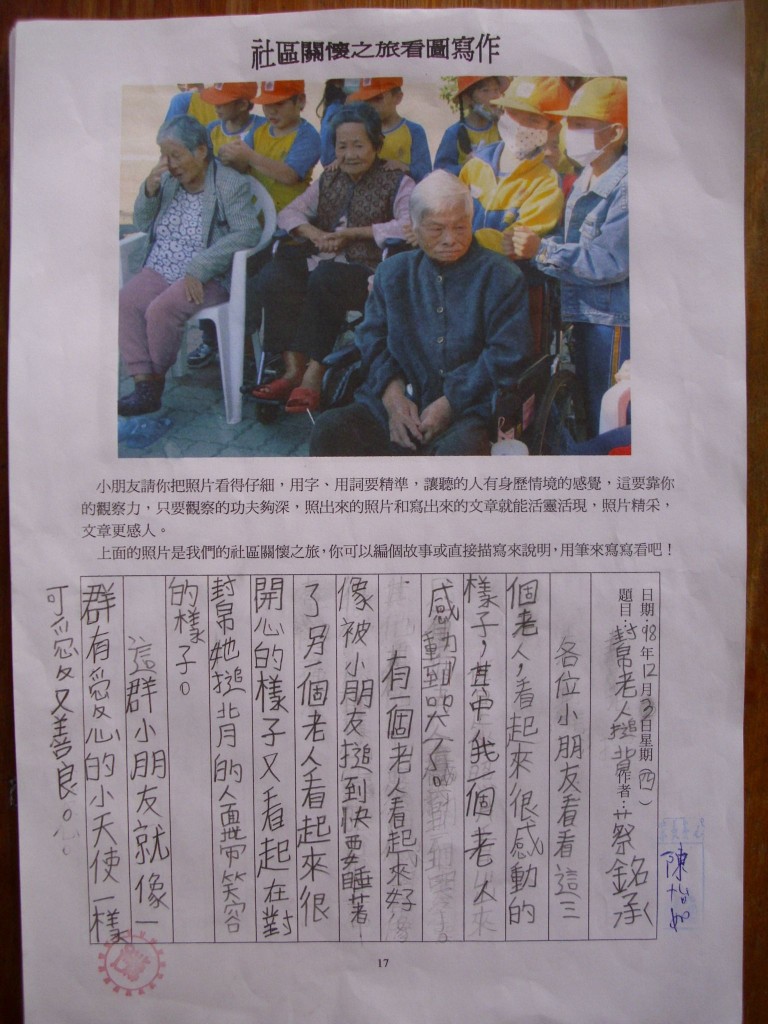 社區關懷之旅看圖寫作
小朋友請你把照片看得仔細，用字、用詞要精準，讓聽的人有身歷情境的感覺，這要靠你
的觀察力，只要觀察的功夫夠深，照出來的照片和寫出來的文章就能活靈活現，照片精采，
文章更感人。
上面的照片是我們的社區關懷之旅，你可以編個故事或直接描寫來說明，用筆來寫寫看吧！
日期：98年12月3日星期（四）
題目：幫老人搥背作者：蔡銘承
陳怡如
各位小朋友看看這三
個老人，看起來很感動的
樣子，其中 一個老人
感動到哭了。
有一個老人看起來好
像被小朋友搥到快要睡著！
了另一個老人看起來很
開心的樣子又看起在對
幫她搥背的人面帶笑容
的樣子。
這群小朋友就像一
群有愛心的小天使一樣
可愛又善良。
17